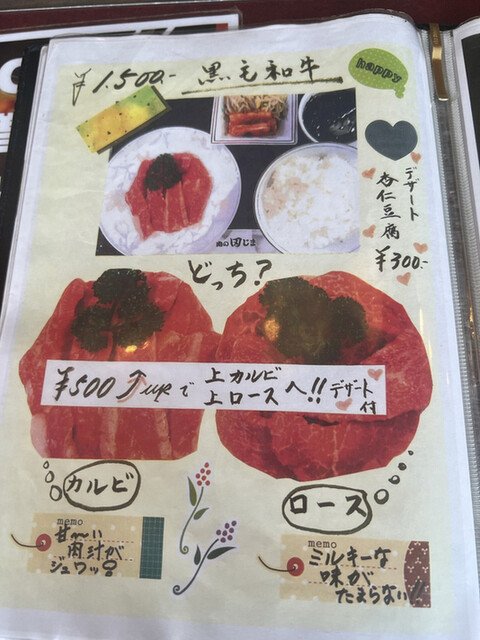 ¥1,500.- 黒毛和牛
happy
デザート
杏仁豆腐
¥300.-
肉の田じま
どっち？
¥500↑upで 上カルビ
上ロース へ!! デザート付
カルビ
ロース
memo
甘〜い
肉汁が
ジュワッ!
memo
ミルキーな
味が
たまらない!